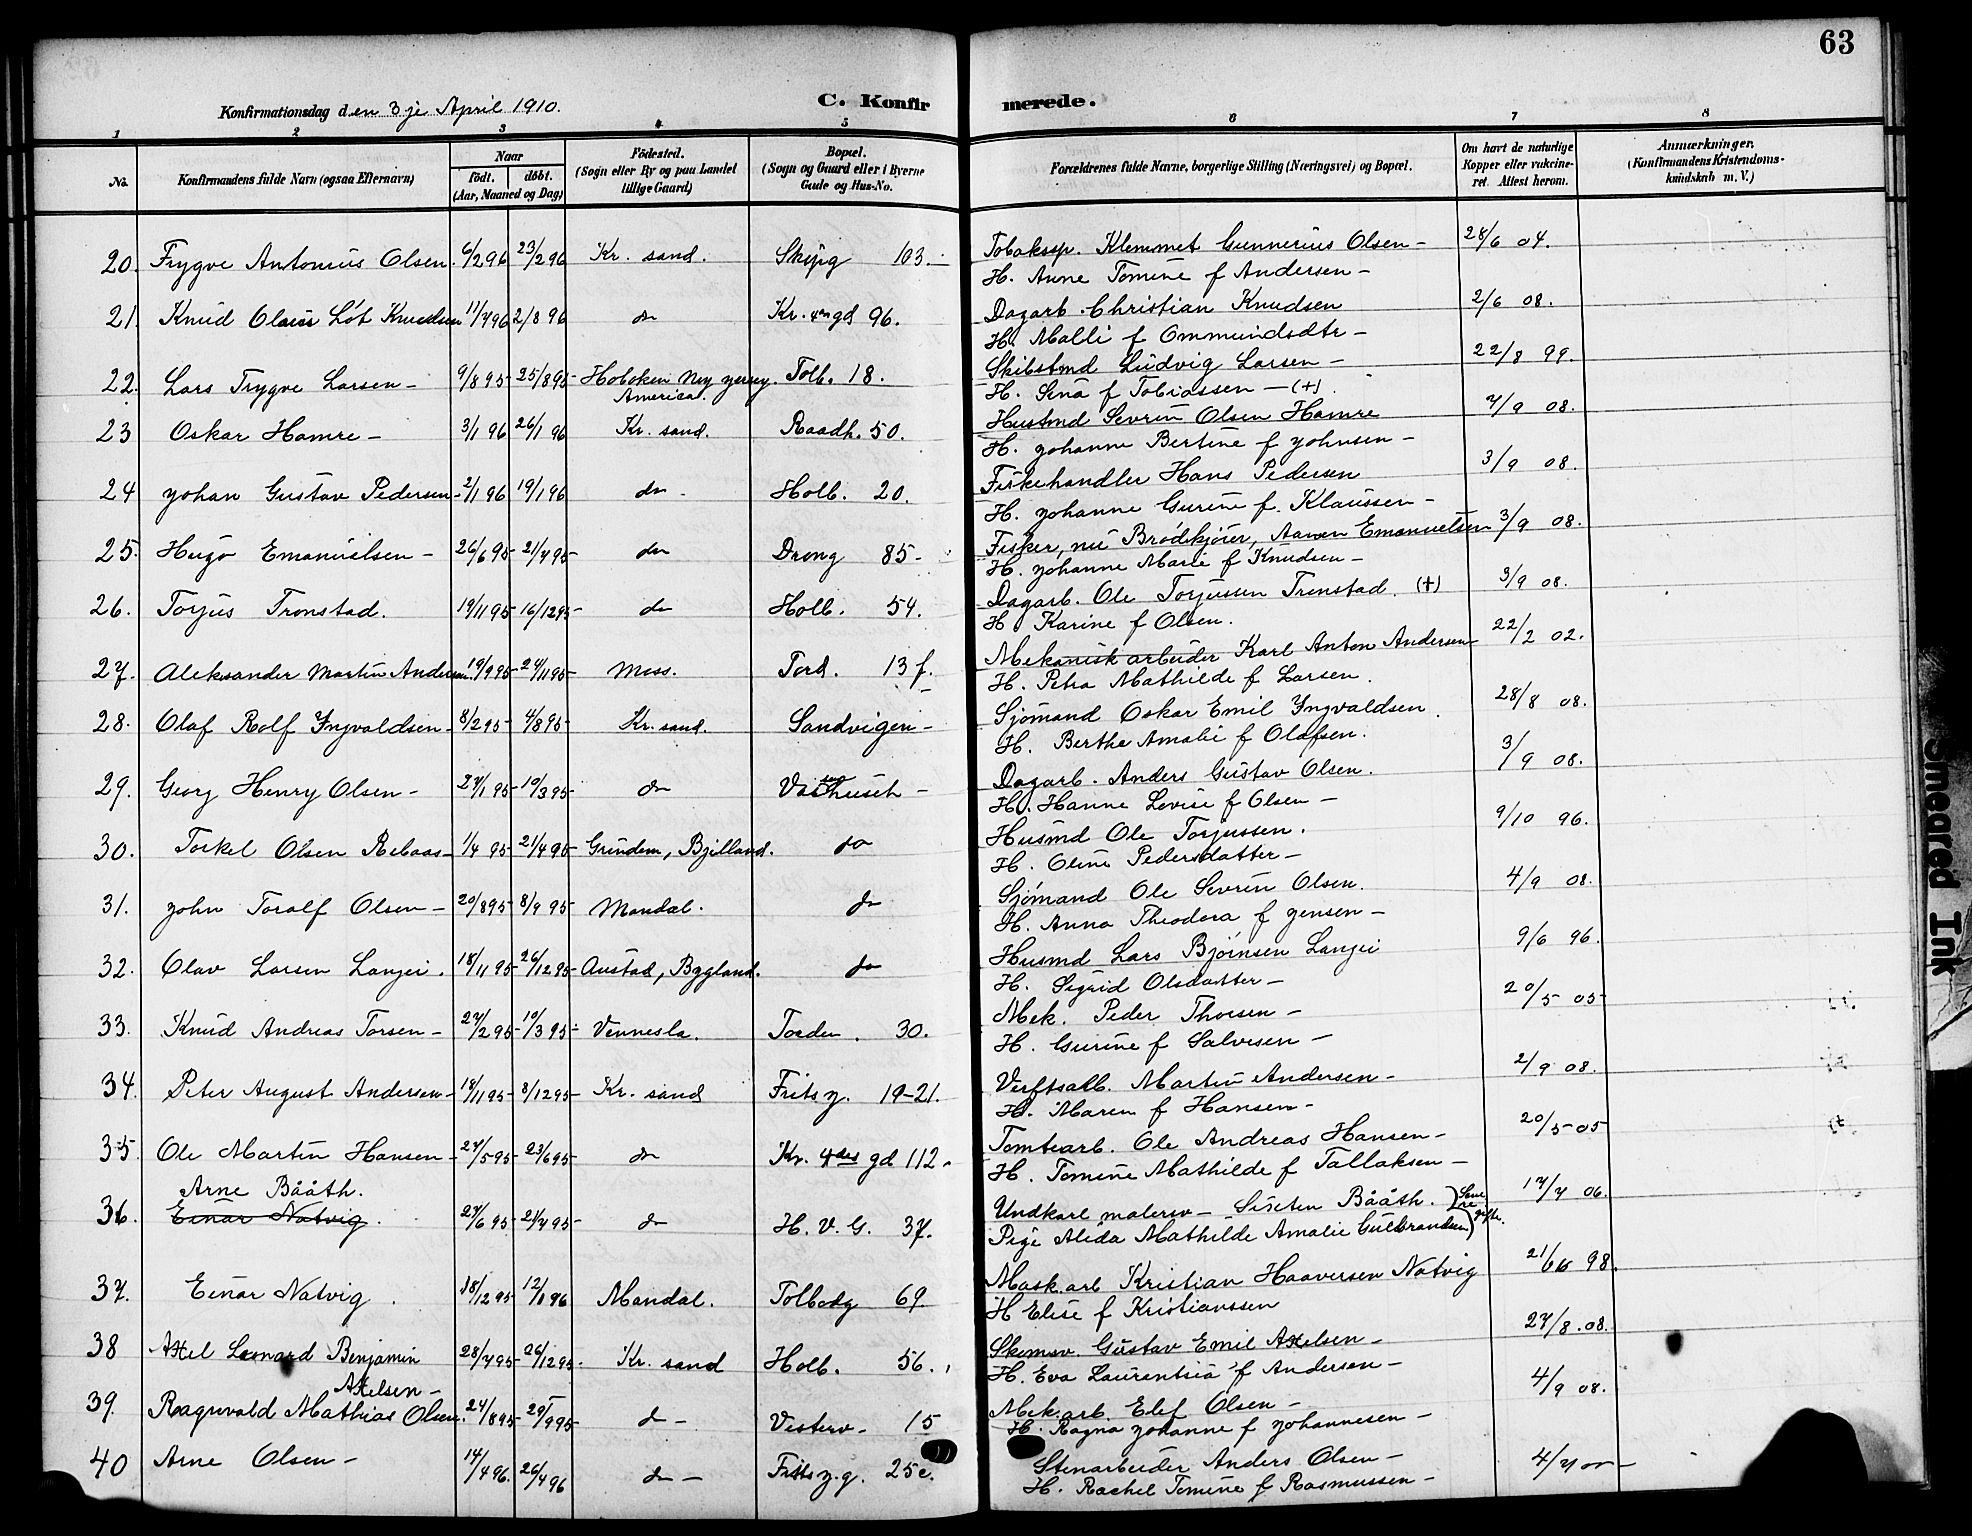 63
Konfirmationsdag den 3je April 1910. C. Konfirmerede.
1 2 3 4 5 6 7 8
No. Konfirmandens fulde Navn (ogsaa Efternavn) Naar født. døbt. (Aar, Maaned og Dag) Fødested. (Sogn eller By og paa Landet tillige Gaard) Bopæl. (Sogn og Gaard eller i Byerne Gade og Hus-No. Forældrenes fulde Navne, borgerlige Stilling (Næringsvei) og Bopæl. Om havt de naturlige Kopper eller vakcineret. Attest herom. Anmærkninger. (Konfirmandens Kristendomskundskab m. V.)
20. Trygve Antonius Olsen. 6/2 96 23/2 96 Kr. sand. Skipg 103.- Tobaksp. Klemmet Gunnerius Olsen - 28/6 04.
H. Anne Tomine f Andersen -
21. Knud Olaus Løt Knudsen 11/7 96 2/8 96 do Kr. 4de gd 96. Dagarb. Christian Knudsen 2/6 08.
H. Malli f Ommundsdtr -
22. Lars Trygve Larsen - 9/8 95 25/8 95 Hoboken Ny yersey. America. Tolb. 18. Skibstmd Ludvig Larsen - 22/8 99.
H. Sina f Tobiassen - (+).
23 Oskar Hamre - 3/1 96 26/1 96 Kr. sand. Raadh. 50. Hustmd Sevrin Olsen Hamre 7/9 08.
H. Johanne Bertine f Johnsen -
24 Johan Gustav Pedersen - 2/1 96 19/1 96 do - Holb. 20. Fiskehandler Hans Pedersen 3/9 08.
H. Johanne Gurine f. Klaussen -
25. Hugo Emanuelsen - 26/6 95 21/7 95 do Drong 85- Fisker, nu Brødkjører, Aanen Emanuelsen 3/9 08.
H. Johanne Marie f Knudsen -
26. Torjus Tronstad. 19/11 95 16/12 95 do Holb. 54. Dagarb. Ole Torjussen Tronstad. (+) 3/9 08.
H. Karine f Olsen.
27. Aleksander Martin Andersen. 19/9 95 24/11 95 Moss. Tord. 13 f. Mekanisk arbeider Karl Anton Andersen 22/2 02.
H. Petra Mathilde f Larsen.
28. Olaf Rolf Yngvaldsen - 8/2 95 4/8 95 Kr. sand. Sandvigen - Sjømand Oskar Emil Yngvaldsen. 28/8 08.
H. Berthe Amalie f Olafsen.
29. Georg Henry Olsen - 27/1 95 10/3 95 do Dagarb. Anders Gustav Olsen. 3/9 08.
H. Hanne Lovise f Olsen -
30. Torkel Olsen Rebaas - 1/4 95 21/4 95 Grindem, Bjelland. do Husmd Ole Torjussen. 9/10 96.
H. Oline Pedersdatter -
31. John Toralf Olsen - 20/8 95 8/9 95 Mandal. do Sjømand Ole Sevrin Olsen. 4/9 08.
H. Anna Theodora f Jensen -
32. Olav Larsen Langei. 18/11 95 26/12 95 Austad, Bygland. do Husmd Lars Bjørnsen Langei 9/6 96.
H. Sigrid Olsdatter -
33. Knud Andreas Torsen - 27/2 95 10/3 95 Vennesla. Torden. 30. Mek. Peder Thorsen - 20/5 05
H. Gurine f Salvesen -
34. Peter August Andersen - 18/11 95 8/12 95 Kr. sand Frits y. 19-21. Verftsarb. Martin Andersen - 2/9 08.
H. Maren f Hansen -
35 Ole Martin Hansen - 27/5 95 23/6 95 do Kr. 4des gd 112. Tomtearb. Ole Andreas Hansen - 20/5 05
H. Tomine Mathilde f Tallaksen -
Arne Bååth.
36. Einar Natvig. 27/6 95 21/7 95 do H. V. G. 37. Undkarl malersv - Sixten Bååth. 17/7 06.
Pige Alida Mathilde Amalie Gulbrandsen) Senere gifte.
37. Einar Natvig. 18/12 95 12/1 96 Mandal. Tolbodg 69. Mask. arb Kristian Haaversen Natvig 98.
H Elise f Kristianssen
38 Axel Leonard Benjamin Axelsen - 28/7 95 26/12 95. Kr. sand Holb. 56. Skomsv. Gustav Emil Axelsen - 27/8. 08.
H. Eva Laurentsia f Andersen -
39. Ragnvald Mathias Olsen. 24/8 95 29/9 95 do - Vesterv- 15 Mek. arb. Elef Olsen - 4/9 08.
H. Ragna Johanne f Johannesen -
40 Arne Olsen - 14/4 96. 26/4 96 do - Frits z. g. 25 c. Stenarbeider Anders Olsen - 4/7 00 -
H. Rachel Tomine f Rasmussen -
Smeared Ink